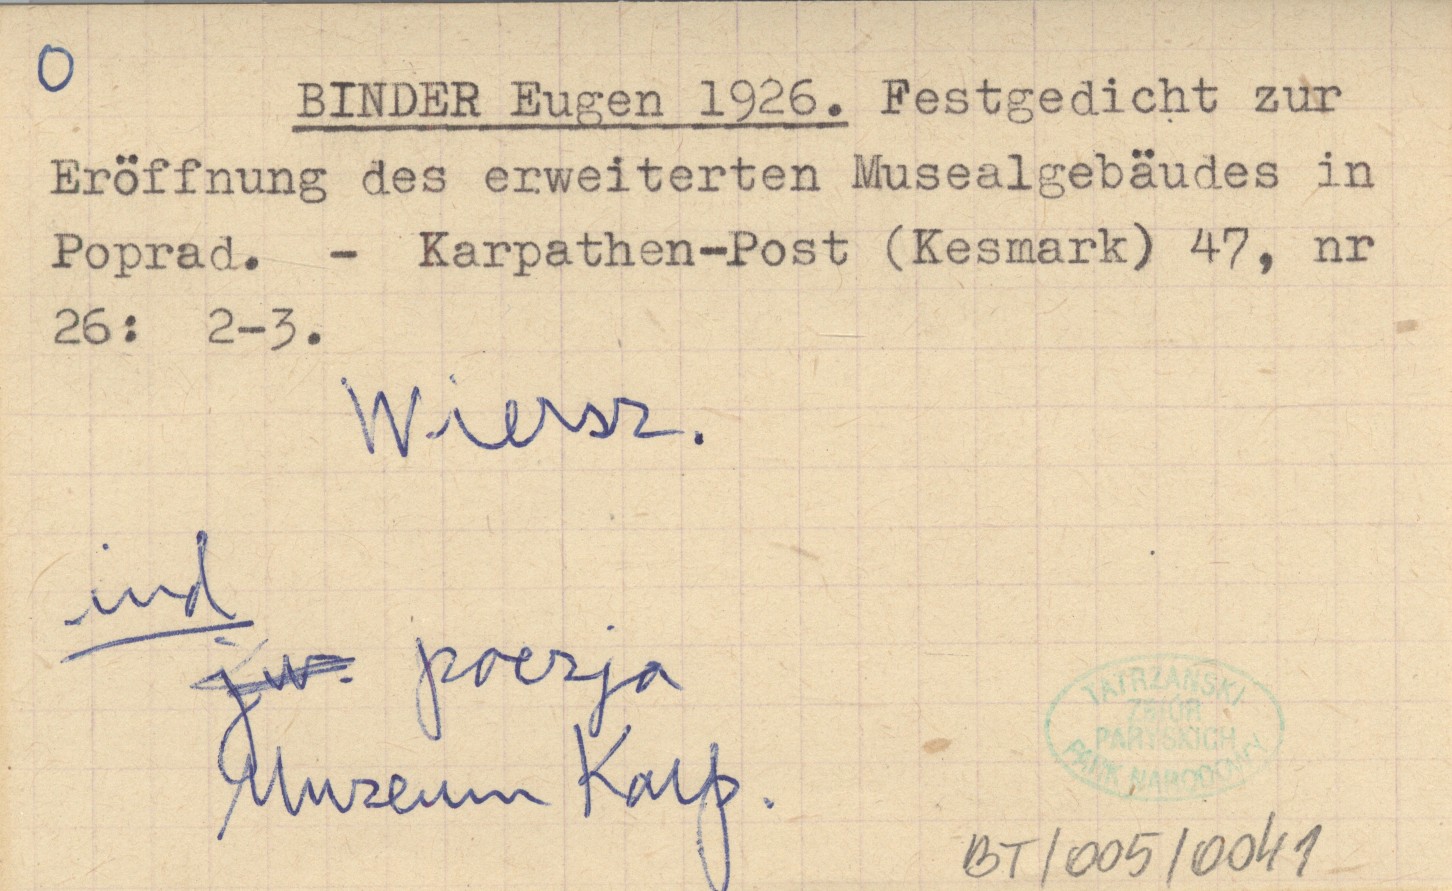 O
BINDER Eugen 1926. Festgedicht zur
Eröffnung des erweiterten Musealgebäudes in
Poprad. - Karpathen-Post (Kesmark) 47, nr
26: 2-3.
Wiersz.
ind
jw. poezja
Muzeum Karp.
TATRZAŃSKI
ZBIÓR
PARYSKICH
PARK NARODOWY
BT/005/0041